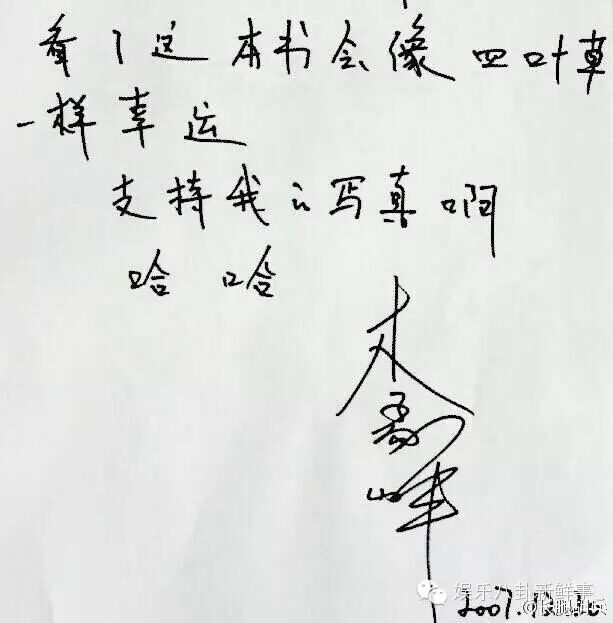 看了这本书会像四叶草
一样幸运
支持我的写真啊
哈哈
乔
峰
娱乐八卦新鲜事
2007.